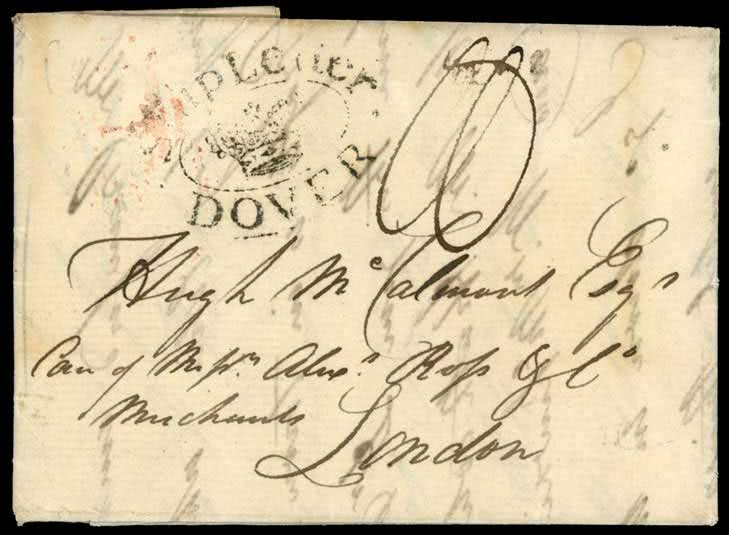 Ship Letter
DOVER
Hugh McCalmont Esqr
Care of Messrs Alexr Ross & Co
Merchants
London